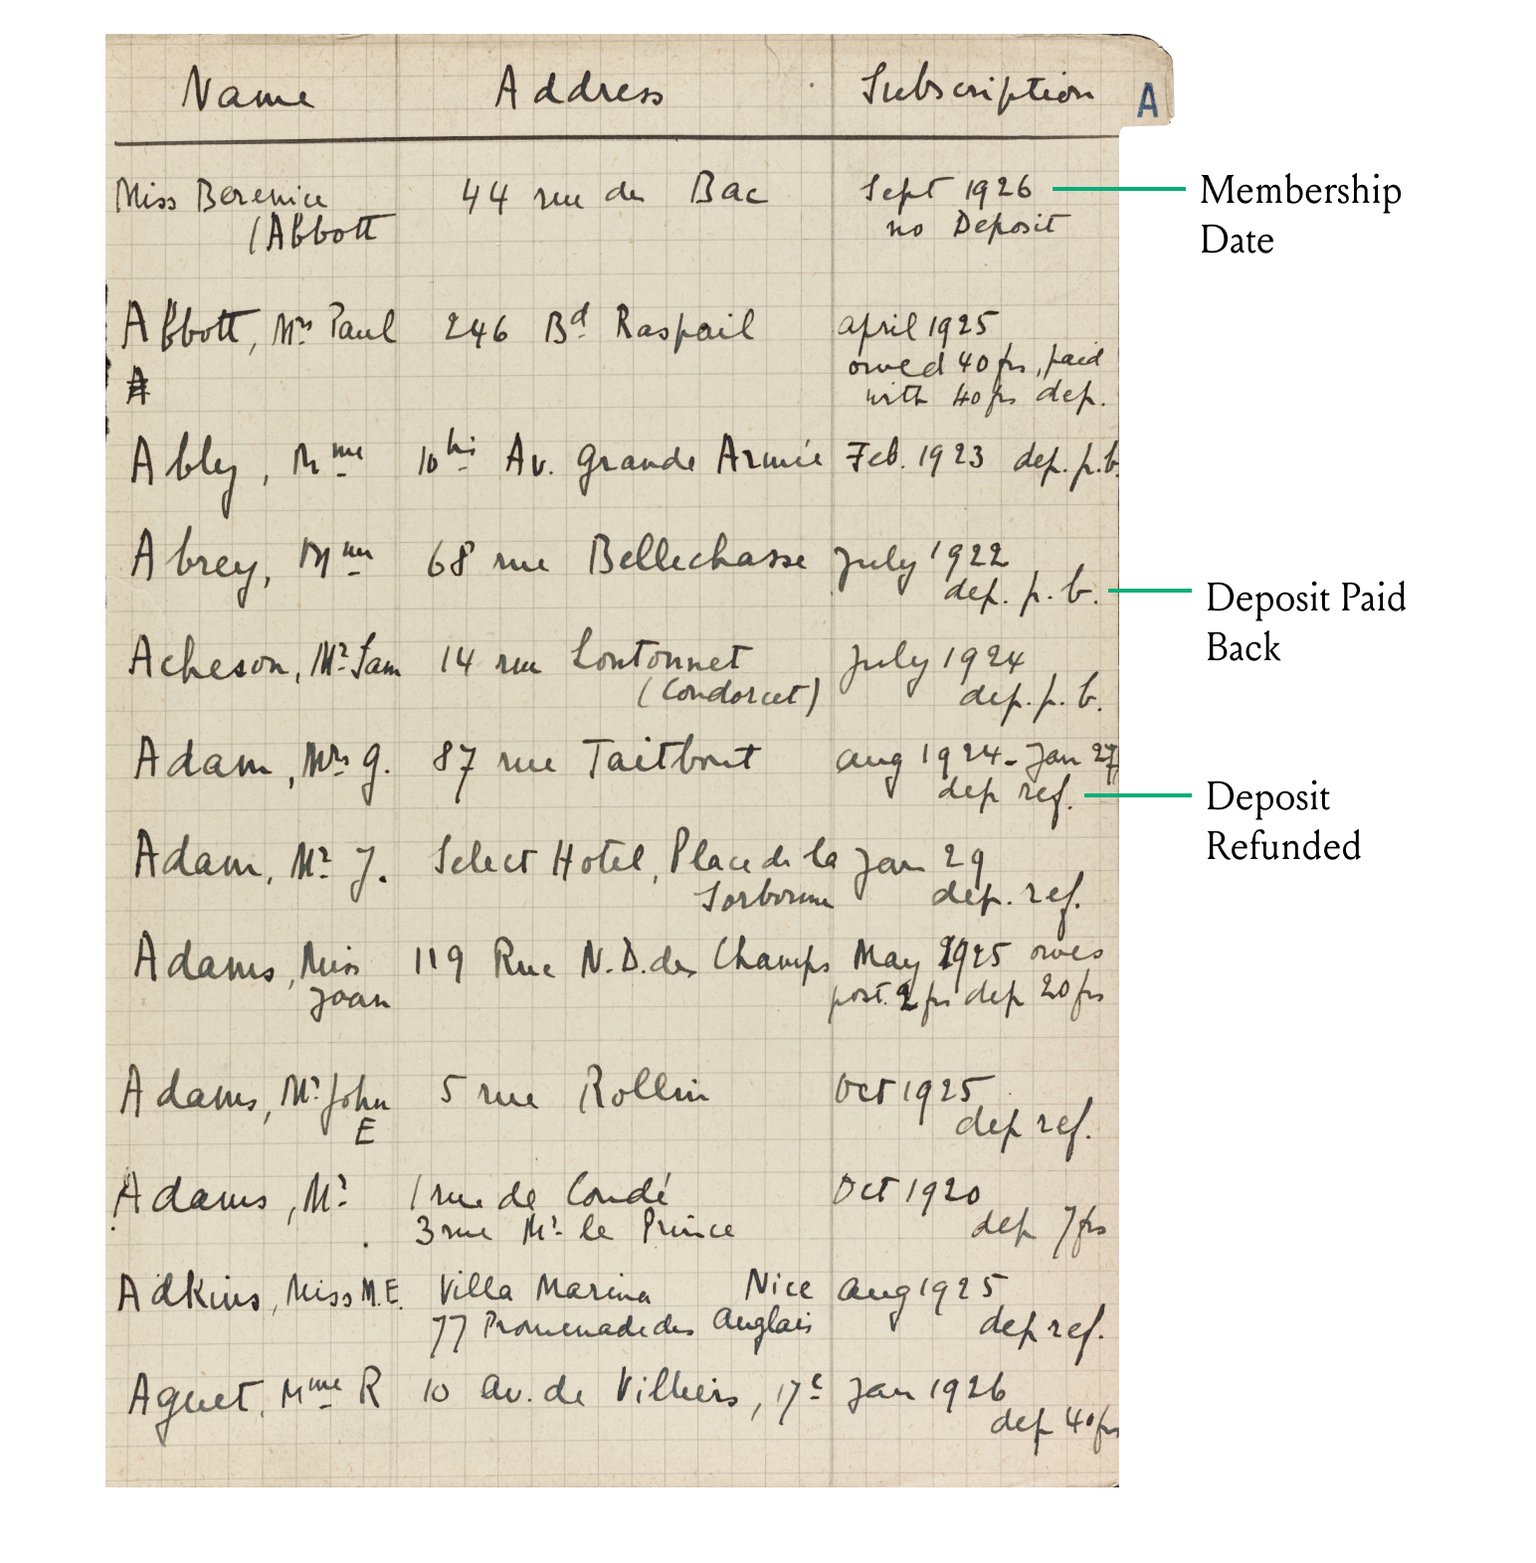 Name Address Subscription A
Miss Berenice 44 rue du Bac Sept 1926
(Abbott no Deposit
Membership
Date
Abbott, Mrs Paul 246 Bd Raspail april 1925
owed 40 frs, paid
A with 40 frs dep.
Abley, Mme 10bis Av. Grande Armée Feb. 1923 dep. p.b.
Abrey, Mme 68 rue Bellechasse July 1922
dep. p. b.
Deposit Paid
Back
Acheson, Mr Sam 14 rue July 1924
(Condorcet) dep. p. b.
Adam, Mrs G. 87 rue Taitbout aug 1924 - Jan 27
dep ref.
Deposit
Refunded
Adam, Mr J. Select Hotel, Place de la Jan 29
Sorbonne dep. ref.
Adams, Miss 119 Rue N.D. des Champs May 1925 owes
Joan post. 2 frs dep 20 frs
Adams, Mr John 5 rue Rollin Oct 1925
E dep ref.
Adams, Mr 1 rue de Condé Oct 1920
3 rue Mr le Prince dep 7 frs
Adkins, Miss M.E. Villa Marina Nice aug 1925
77 Promenade des Anglais dep ref.
Aguet, Mme R 10 av. de Villiers, 17e Jan 1926
dep 40 frs